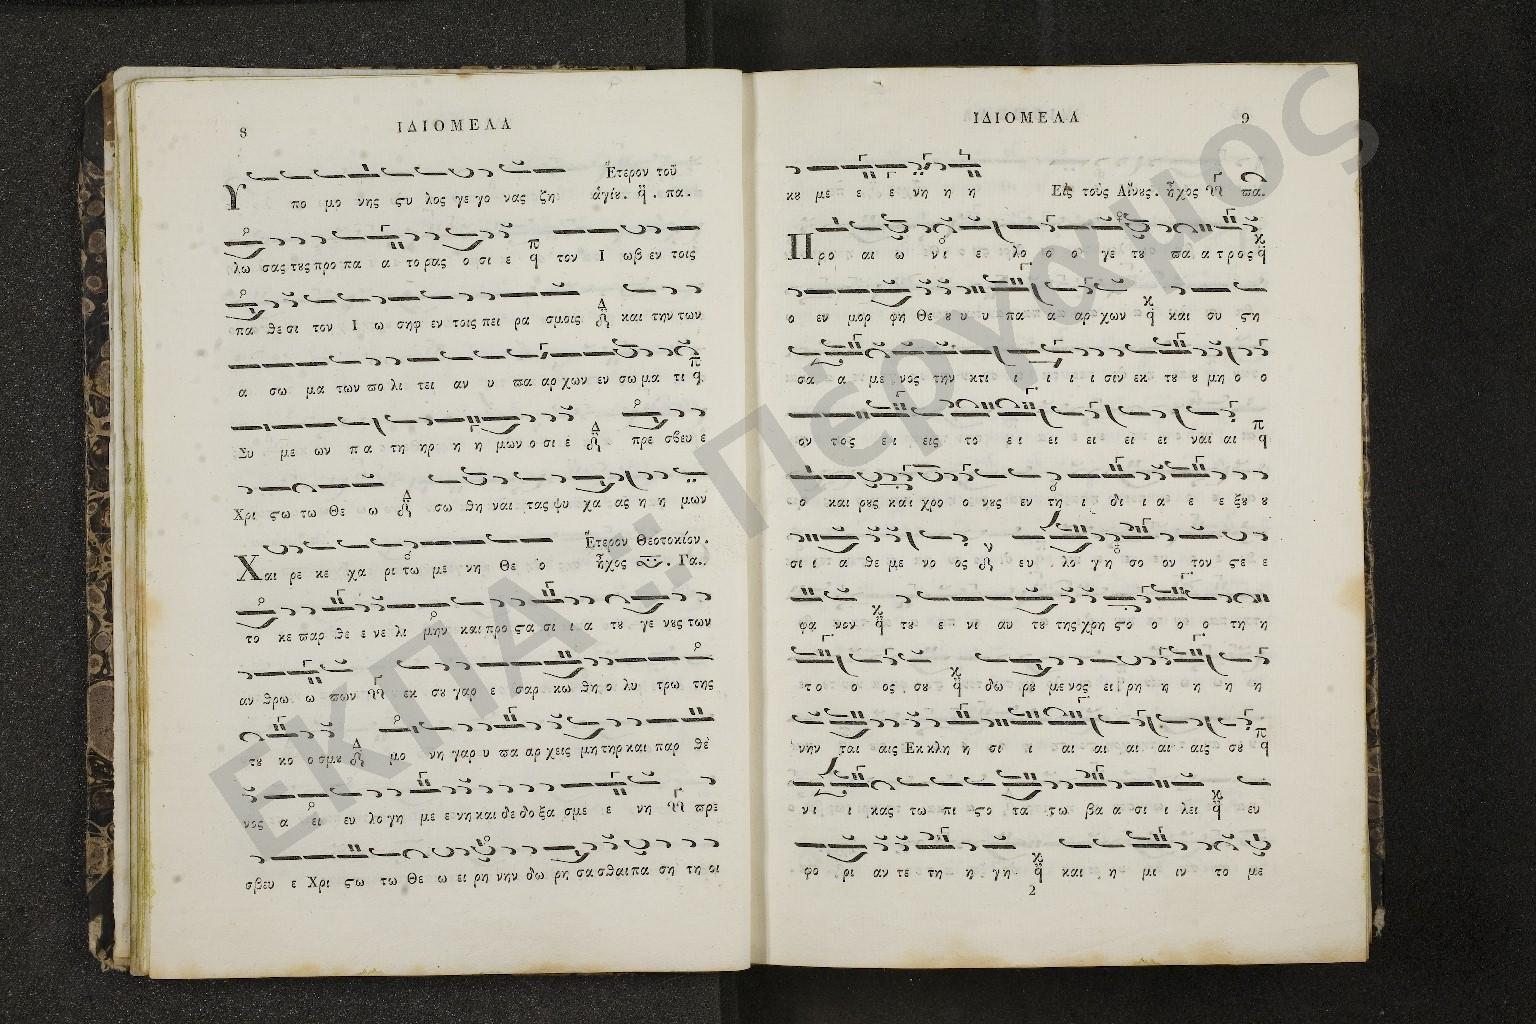 8
ΙΔΙΟΜΕΛΑ
Ἕτερον τοῦ
Υ πο μο νης ϛυ λος γε γο νας ζη ἁγίȣ. q̈ . πα .
λω σας τȣς προ πα α το ρας ο σι ε π q τον Ι ωβ εν τοις
πα θε σι τον Ι ω σηφ εν τοις πει ρα σμοις Δ και την των
α σω μα των πο λι τει αν υ πα αρ χων εν σω μα τι π q
Συ με ων πα τη ηρ η η μων ο σι ε Δ πρε σβευ ε
Χρι ϛω τω Θε ω Δ σω θη ναι τας ψυ χα ας η η μων
Ἕτερον Θεοτοκίον .
Χ αι ρε κε χα ρι τω με νη Θε ο ἦχος . Γα..
το κε παρ θε ε νε λι μην και προ ϛα σι ι α τȣ γε νȣς των
αν θρω ω πων εκ σȣ γαρ ε σαρ κω θη ο λυ τρω της
τȣ κο ο σμȣ Δ μο νη γαρ υ πα αρ χεις μη τηρ και παρ θε
νος α ει ευ λο γη με ε νη και δε δο ξα σμε ε νη πρε
σβευ ε Χρι ϛω τω Θε ω ει ρη νην δω ρη σα σθαι πα ση τη οι
ΙΔΙΟΜΕΛΑ
9
κȣ με ε ε νη η η Εἰς τοὺς Αἴνȣς . ἦχος πα.
Π ρο αι ω νι ε λο ο ο γε τȣ πα α τρος κ q̈
ο εν μορ φη Θε ȣ υ υ πα α αρ χων κ q̈ και συ ϛη
σα α με νος την κτι ι ι ι ι σιν εκ τȣ ȣ μη ο ο
ον τος ει εις το ει ει ει ει ει ναι αι π q
ο και ρȣς και χρο ο νȣς εν τη ι δι ι α ε ε ξȣ ȣ
σι ι α θε με νο ος ν ευ λο γη σο ον τον ϛε ε
φα νον κ q̈ τȣ ε νι αυ τȣ της χρη ϛο ο ο ο τη η
το ο ος σȣ κ q̈ δω ρȣ με νος ει ρη η η η η
νην ται αις Εκ κλη η σι ι αι αι αι αι αις σȣ π q
νι ι κας τω πι ϛο τα τω βα α σι ι λει κ q̈ ευ
φο ρι αν τε τη η γη κ q̈ και η μι ιν το με
2
ΕΚΠΑ :: Πέργαμος